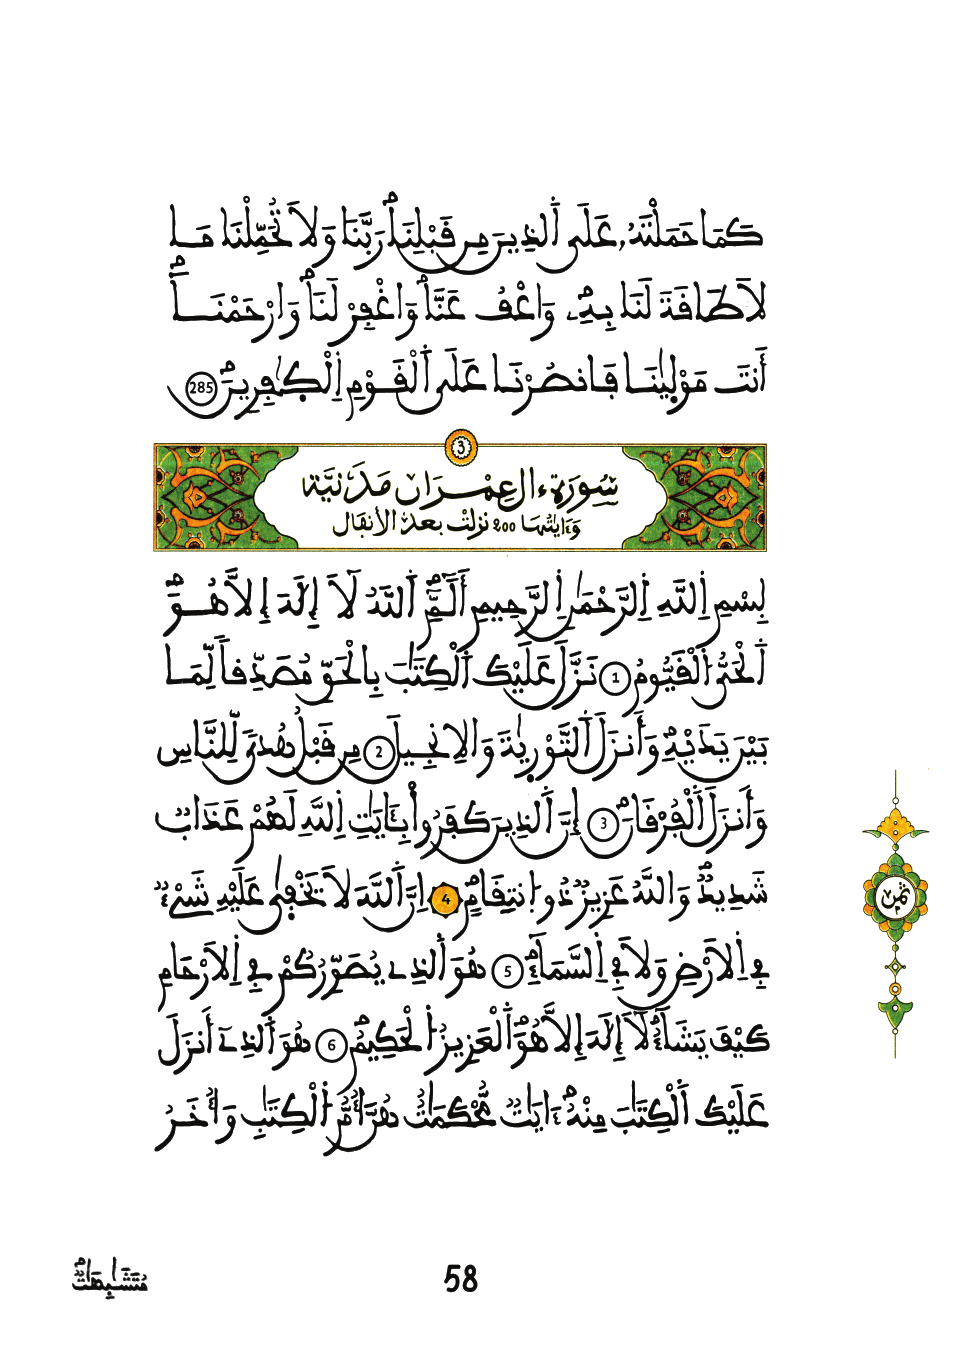 كَمَا حَمَلْتَهُۥ عَلَى اَ۬لذِينَ مِن قَبْلِنَاۖ رَبَّنَا وَلَا تُحَمِّلْنَا مَا
لَا طَاقَةَ لَنَا بِهِۦۖ وَاعْفُ عَنَّاۖ وَاغْفِرْ لَنَاۖ وَارْحَمْنَاۖ
أَنتَ مَوْل۪يٰنَا فَانصُرْنَا عَلَى اَ۬لْقَوْمِ اِ۬لْكٰ۪فِرِينَۖ 285
3
سُورَةُ ءَالِ عِمْرَانَ مَدَنِيَّة
وَءَايَٰتُهَا 200 نزلت بعد الأنفال
بِسْمِ اِ۬للَّهِ اِ۬لرَّحْمَٰنِ اِ۬لرَّحِيمِ أَلَٓمِّٓۖ اَ۬للَّهُ لَآ إِلَٰهَ إِلَّا هُوَۖ
اَ۬لْحَيُّ اُ۬لْقَيُّومُۖ 1 نَزَّلَ عَلَيْكَ اَ۬لْكِتَٰبَ بِالْحَقِّ مُصَدِّقاٗ لِّمَا
بَيْنَ يَدَيْهِۖ وَأَنزَلَ اَ۬لتَّوْر۪يٰةَ وَالِانجِيلَ 2 مِن قَبْلُ هُديٗ لِّلنَّاسِ
وَأَنزَلَ اَ۬لْفُرْقَانَۖ 3 إِنَّ اَ۬لذِينَ كَفَرُواْ بِـَٔايَٰتِ اِ۬للَّهِ لَهُمْ عَذَابٞ
شَدِيدٞۖ وَاللَّهُ عَزِيزٞ ذُو اُ۪نتِقَامٍۖ 4 اِنَّ اَ۬للَّهَ لَا يَخْفَىٰ عَلَيْهِ شَےْءٞ
فِے اِ۬لَارْضِ وَلَا فِے اِ۬لسَّمَآءِۖ 5 هُوَ اَ۬لذِے يُصَوِّرُكُمْ فِے اِ۬لَارْحَامِ
كَيْفَ يَشَآءُۖ لَآ إِلَٰهَ إِلَّا هُوَۖ اَ۬لْعَزِيزُ اُ۬لْحَكِيمُۖ 6 هُوَ اَ۬لذِےٓ أَنزَلَ
عَلَيْكَ اَ۬لْكِتَٰبَ مِنْهُۖ ءَايَٰتٞ مُّحْكَمَٰتٌ هُنَّ أُمُّ اُ۬لْكِتَٰبِ وَأُخَرُ
ثمن
مُتَشَٰبِهَٰتٞۖ
58